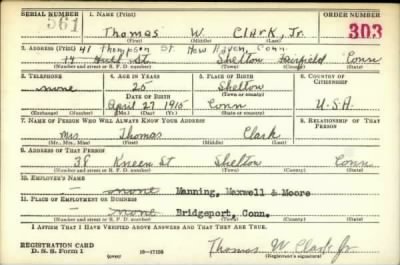 SERIAL NUMBER 1. NAME (Print) ORDER NUMBER
561 Thomas W. Clark, Jr. 303
(First) (Middle) (Last)
2. ADDRESS (Print) 41 Thompson St. New Haven, Conn.
17 Hull St Shelton Fairfield Conn
(Number and street or R. F. D. number) (Town) (County) (State)
3. TELEPHONE 4. AGE IN YEARS 5. PLACE OF BIRTH 6. COUNTRY OF CITIZENSHIP
none 25 Shelton
DATE OF BIRTH (Town or county)
April 27 1915 Conn U.S.A.
(Exchange) (Number) (Mo.) (Day) (Yr.) (State or country)
7. NAME OF PERSON WHO WILL ALWAYS KNOW YOUR ADDRESS 8. RELATIONSHIP OF THAT PERSON
Mrs Thomas Clark
(Mr., Mrs., Miss) (First) (Middle) (Last)
9. ADDRESS OF THAT PERSON
38 Kneen St Shelton Conn
(Number and street or R. F. D. number) (Town) (County) (State)
10. EMPLOYER'S NAME
none Manning, Maxwell & Moore
11. PLACE OF EMPLOYMENT OR BUSINESS
none Bridgeport, Conn.
(Number and street or R. F. D. number) (Town) (County) (State)
I AFFIRM THAT I HAVE VERIFIED ABOVE ANSWERS AND THAT THEY ARE TRUE.
REGISTRATION CARD
D. S. S. Form 1 (over) 16—17105 Thomas W. Clark Jr
(Registrant's signature)